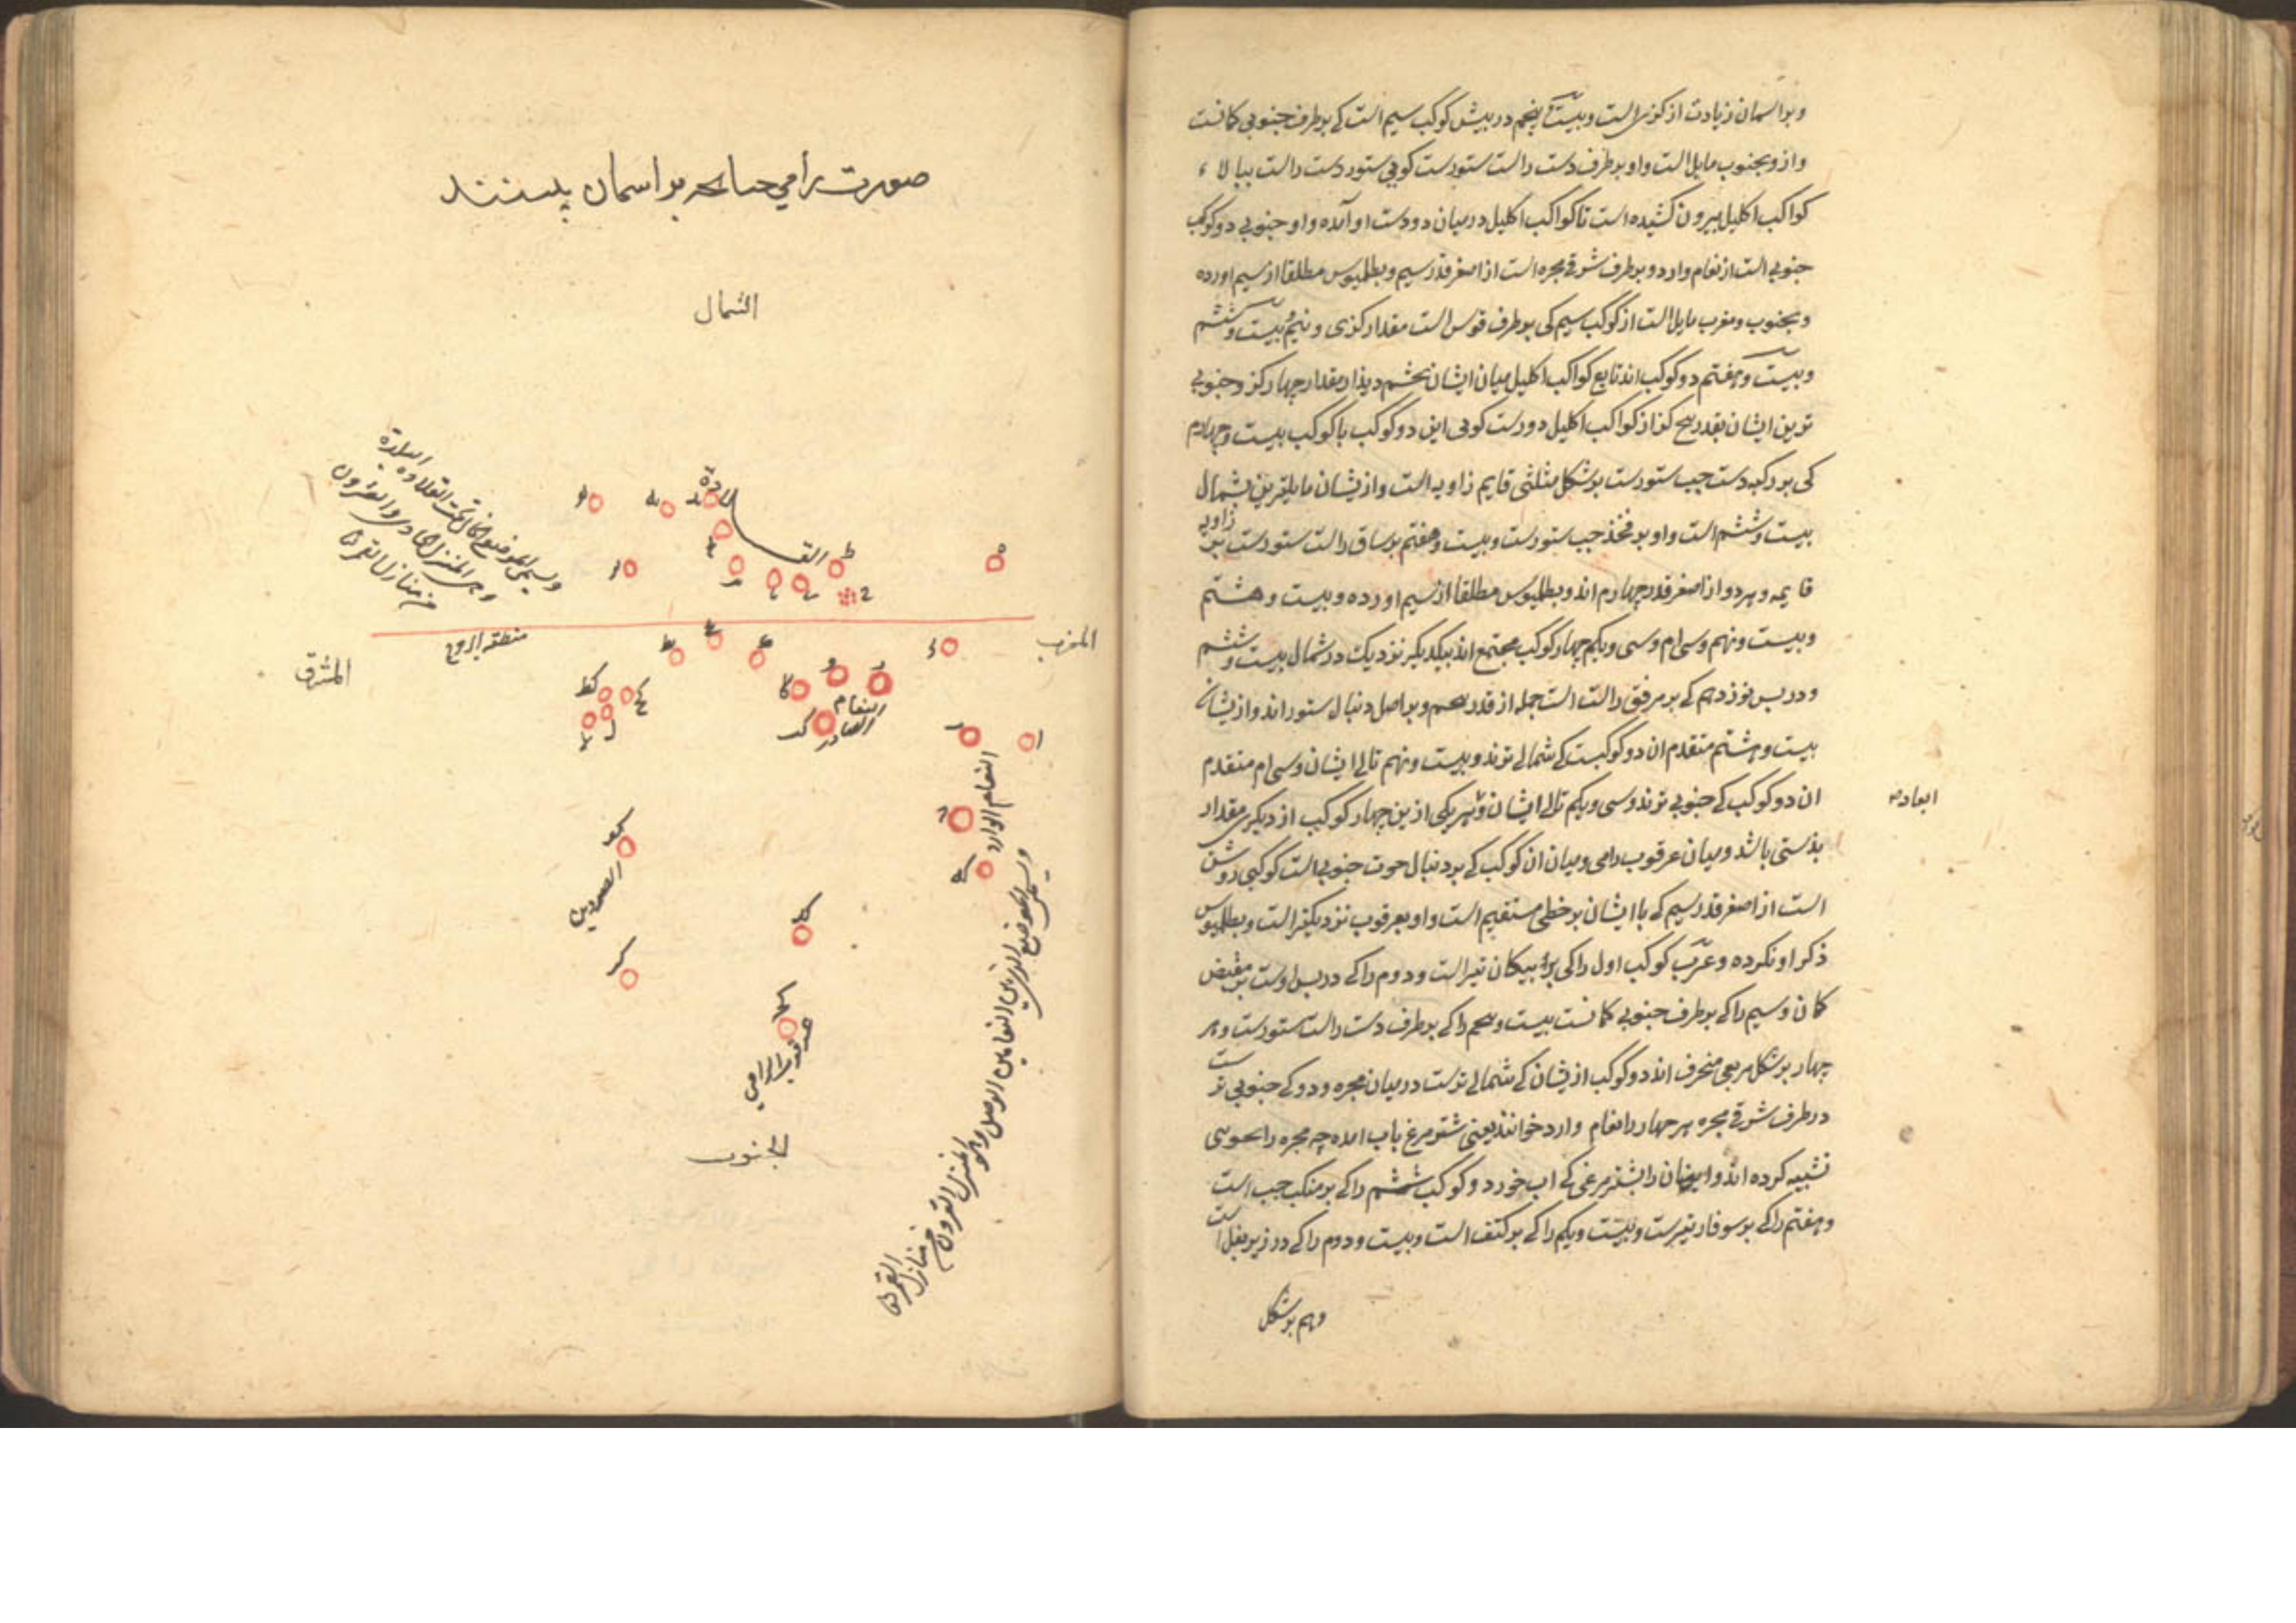 وبر اسمان زیادت از کزی است و بیست و پنجم در پیش کوکب سیم است که بر طرف جنوبی کمانست
واز و بجنوب مایل است واو بر طرف دست راست ستورست کویی ستور دست راست ببالاء
کواکب اکلیل بیرون کشیده است تا کواکب اکلیل در میان دو دست او آمده واو جنوبی دو کوکب
جنوبی است از نعام وارد و بر طرف شرقی مجره است از اصغر قدر سیم و بطلمیوس مطلقا از سیم اورده
و بجنوب و مغرب مایل است از کوکب سیم کی بر طرف قوس است مقدار کزی و نیم و بیست و ششم
و بیست و هفتم دو کوکب اند تابع کواکب اکلیل میان ایشان بچشم دیدار مقدار چهار کز و جنوبی
ترین ایشان بقدر پنج کز از کواکب اکلیل دورست کویی این دو کوکب با کوکب بیست و چهارم
کی بر رکبه دست چپ ستورست بر شکل مثلثی قایم زاویه است واز یشان مایلترین بشمال
بیست و ششم است واو بر فخذ چپ ستورست و بیست و هفتم بر ساق راست ستورست بر زاویه
قایمه و هر دو از اصغر قدر چهارم اند و بطلمیوس مطلقا از سیم اورده و بیست و هشتم
و بیست و نهم و سی ام و سی و یکم چهار کوکب مجتمع اند بیکدیکر نزدیک در شمال بیست و ششم
و در پس نوزدهم که بر مرفق راست است جمله از قدر پنجم و بر اصل دنبال ستور اند واز یشان
بیست و هشتم متقدم ان دو کوکبست که شمالی ترند و بیست و نهم تالی ایشان و سی ام متقدم
ان دو کوکب که جنوبی ترند و سی و یکم تالی ایشان و هر یکی ازین چهار کوکب از دیکری مقدار
بدستی باشد و میان عرقوب رامی و میان ان کوکب که بر دنبال حوت جنوبی است کوکبی روشن
است از اصغر قدر سیم که با ایشان بر خطی مستقیم است واو بعرقوب نزدیکتر است و بطلمیوس
ذکر او نکرده و عرب کوکب اول را کی بر پیکان تیر است و دوم را که در پس اوست بر مقبض
کمان و سیم را که بر طرف جنوبی کمانست بیست و پنجم را که بر طرف دست راست ستورست و هر
چهار بر شکل مربعی منحرف اند دو کوکب از یشان که شمالی ترست در میان مجره و دو که جنوبی ترست
در طرف شرقی مجره هر چهار را نعام وارد خوانند یعنی شتر مرغ باب امده چه مجره را بجویی
تشبیه کرده اند و ایشان را بشتر مرغی که اب خورد و کوکب ششم را که بر منکب چپ است
و هفتم را که بر سوفار تیرست و بیست و یکم را که بر کتف است و بیست و دوم را که در زیر بغل است
وهم بر شکل
ابعاد
صورت رامی چنانچه بر اسمان بینند
الشمال
البلدة
ویسمی الموضع الخالی تحت القلادة
وهی المنزل الحادی والعشرون
من منازل القمر
القلادة
المغرب
منطقة البروج
المشرق
النعام
الصادر
النعام الوارد
الصردین
عرقوب الرامی
ویسمی الموضع الذی بین النعامین الوصل وهو المنزل العشرون من منازل القمر
الجنوب